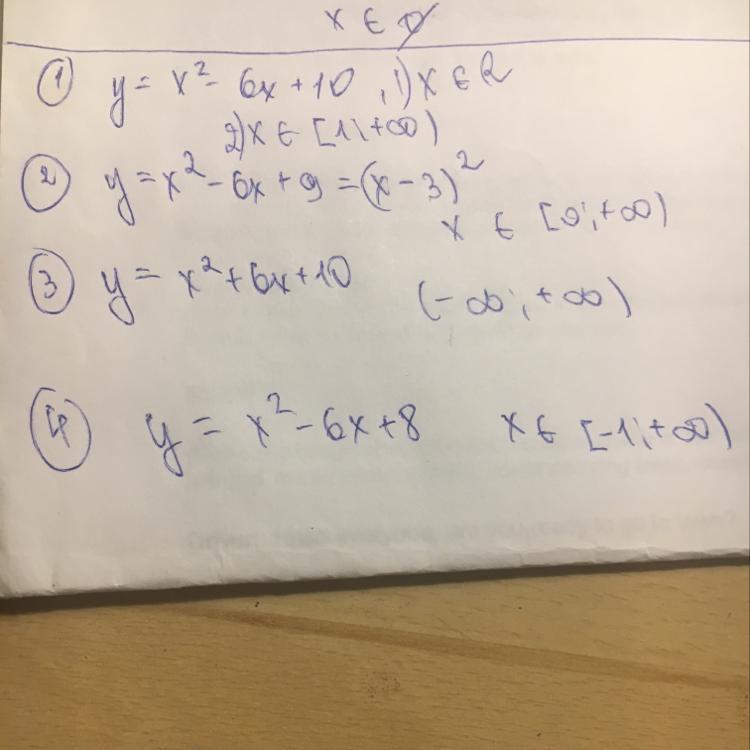 x ∈ ∅
① y = x² - 6x + 10, 1) x ∈ R
2) x ∈ [1; +∞)
② y = x² - 6x + 9 = (x - 3)²
x ∈ [0; +∞)
③ y = x² + 6x + 10 (-∞; +∞)
④ y = x² - 6x + 8 x ∈ [-1; +∞)